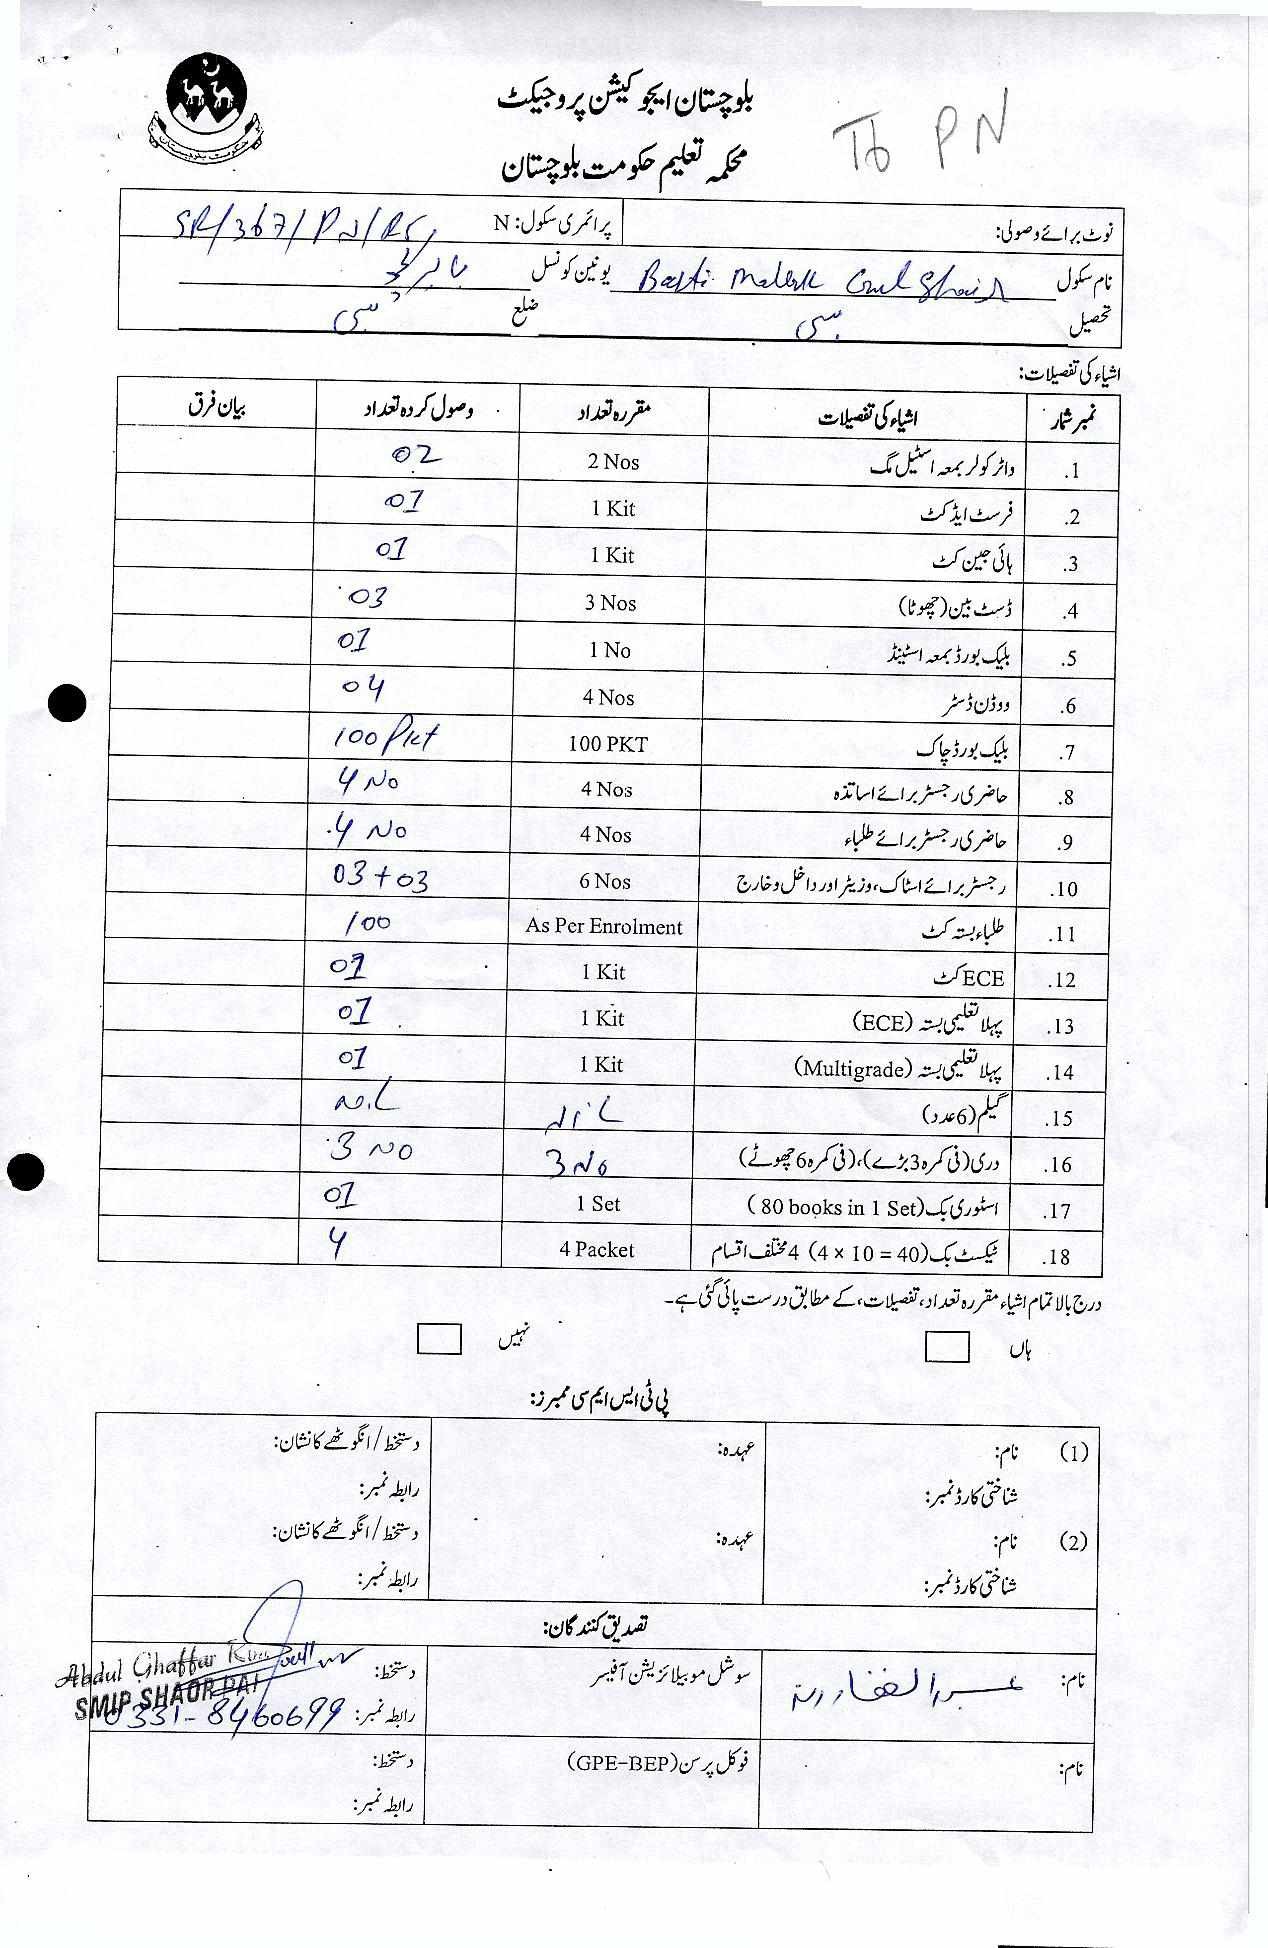 بلوچستان ایجوکیشن پروجیکٹ
To PN
محکمہ تعلیم حکومت بلوچستان
حکومت بلوچستان
نوٹ برائے وصولی: پرائمری سکول: N SR/367/PN/RS
نام سکول Basti Malik Gul یونین کونسل
تحصیل سبی ضلع سبی
اشیاء کی تفصیلات:
نمبر شمار اشیاء کی تفصیلات مقررہ تعداد وصول کردہ تعداد بیان فرق
1. واٹر کولر بمعہ اسٹیل مگ 2 Nos 02
2. فرسٹ ایڈ کٹ 1 Kit 01
3. ہائی جین کٹ 1 Kit 01
4. ڈسٹ بین (چھوٹا) 3 Nos 03
5. بلیک بورڈ بمعہ اسٹینڈ 1 No 01
6. ووڈن ڈسٹر 4 Nos 04
7. بلیک بورڈ چاک 100 PKT 100 Pkt
8. حاضری رجسٹر برائے اساتذہ 4 Nos 4 No
9. حاضری رجسٹر برائے طلباء 4 Nos 4 No
10. رجسٹر برائے اسٹاک، وزیٹر اور داخل و خارج 6 Nos 03+03
11. طلباء بستہ کٹ As Per Enrolment 100
12. ECE کٹ 1 Kit 01
13. پہلا تعلیمی بستہ (ECE) 1 Kit 01
14. پہلا تعلیمی بستہ (Multigrade) 1 Kit 01
15. گیلم (6 عدد) NiL NiL
16. دری (فی کمرہ 3 بڑے)، (فی کمرہ 6 چھوٹے) 3 No 3 NO
17. اسٹوری بک (80 books in 1 Set) 1 Set 01
18. ٹیکسٹ بک (4 × 10 = 40) 4 مختلف اقسام 4 Packet 4
درج بالا تمام اشیاء مقررہ تعداد، تفصیلات، کے مطابق درست پائی گئی ہے۔
ہاں نہیں
پی ٹی ایس ایم سی ممبرز:
(1) نام: عہدہ: دستخط/انگوٹھے کا نشان:
شناختی کارڈ نمبر: رابطہ نمبر:
(2) نام: عہدہ: دستخط/انگوٹھے کا نشان:
شناختی کارڈ نمبر: رابطہ نمبر:
تصدیق کنندگان:
نام: عبدالغفار سوشل موبیلائزیشن آفیسر دستخط: Abdul Ghaffar
SMIP SHAOR PAI
رابطہ نمبر: 0331-8460699
نام: فوکل پرسن (GPE-BEP) دستخط:
رابطہ نمبر: